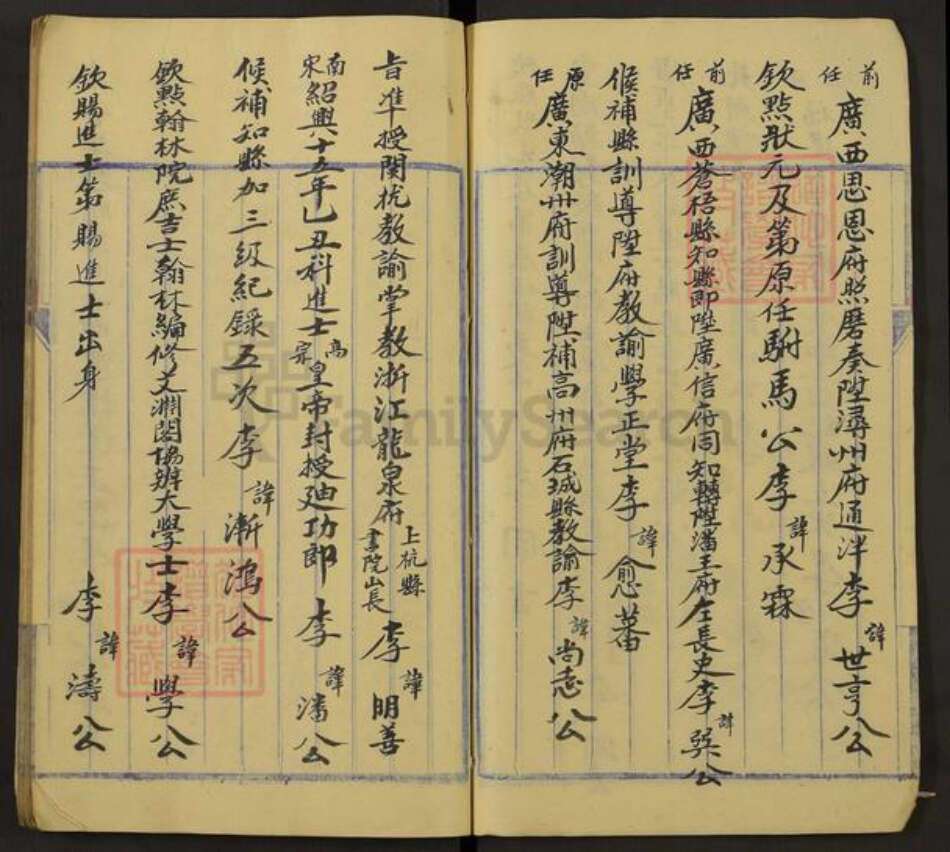 前任廣西思恩府照磨奏陞潯州府通泮李諱世亨公
欽點狀元及第原任駙馬公李諱承霖
前任廣西蒼梧縣知縣即陞廣信府同知轉陞潘王府左長史李諱巽公
候補縣訓導陞府教諭學正堂李諱愈蕃
原任廣東潮州府訓導陞補高州府石城縣教諭李諱尚志公
旨准授閔杭教諭掌教浙江龍泉府上杭縣書院山長李諱明善
南宋紹興十五年乙丑科進士高宗皇帝封授廸功郎李諱潘公
候補知縣加三級紀錄五次李諱漸鴻公
欽點翰林院庶吉士翰林編修文淵閣協辦大學士李諱學公
欽賜進士第賜進士出身李諱濤公
FamilySearch